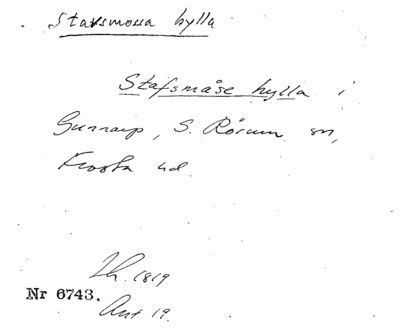 Stavsmossa hylla
Stafsmåse hylla i
Gunnarp, S. Rörum sn,
Frosta hd.
Th. 1819
Nr 6743.
Ant 19.